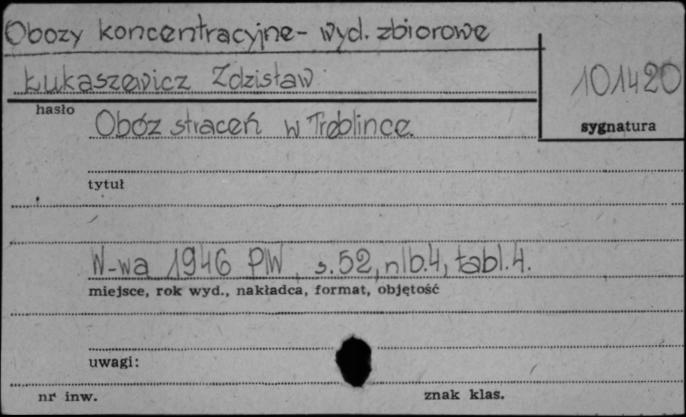 Obozy koncentracyjne - wyd. zbiorowe
Łukaszewicz Zdzisław
101420
hasło
sygnatura
Obóz straceń w Treblince.
tytuł
W-wa 1946 PIW, s.52, nlb.4, tabl.4.
miejsce, rok wyd., nakładca, format, objętość
uwagi:
nr inw.
znak klas.